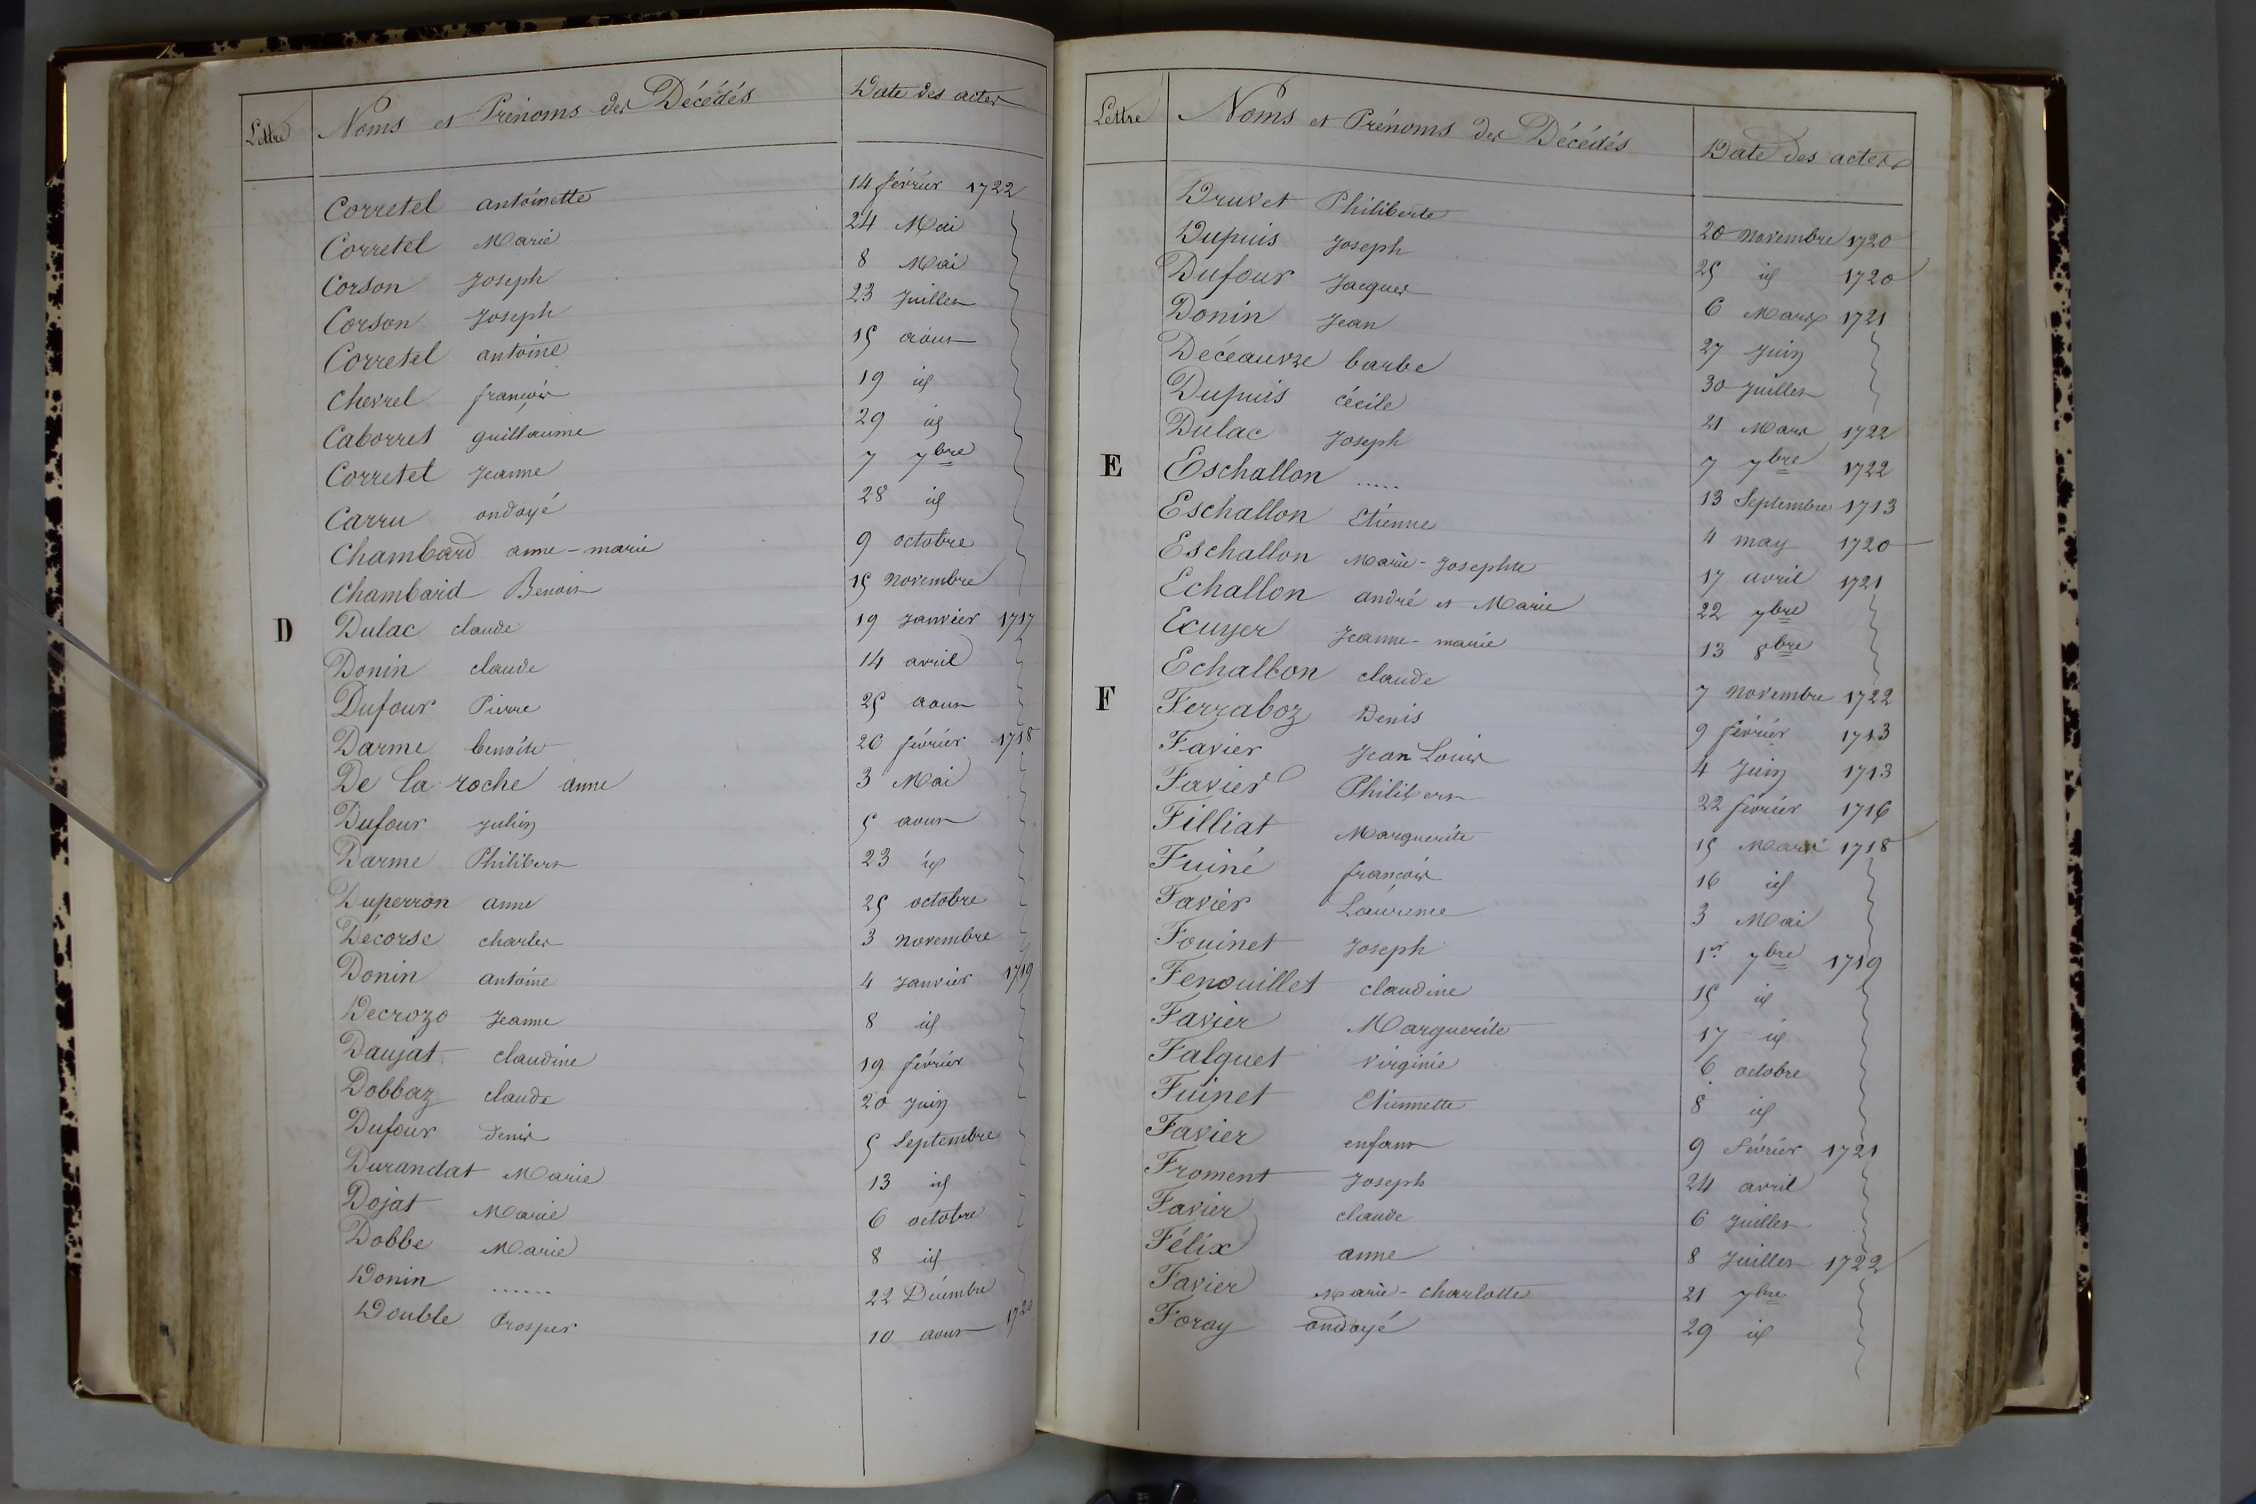 Lettre Noms et Prénoms des Décédés Date des actes
Corretel antoinette 14 février 1722
Corretel Marie 24 Mai
Corson Joseph 8 Mai
Corson Joseph 23 Juillet
Corretel antoine 15 aout
Chevrel françois 19 id
Caborret guillaume 29 id
Corretel Jeanne 7 7bre
Carru ondoyé 28 id
Chambard anne-marie 9 octobre
Chambard Benoit 15 novembre
D Dulac claude 19 Janvier 1717
Donin claude 14 avril
Dufour Pierre 25 aout
Darme benoite 20 février 1718
De la roche anne 3 Mai
Dufour julien 5 aout
Darme Philibert 23 id
Duperron anne 25 octobre
Décorse charles 3 novembre
Donin antoine 4 Janvier 1719
Decrozo Jeanne 8 id
Daujat claudine 19 février
Dobbaz claude 20 Juin
Dufour denis 5 Septembre
Durandat Marie 13 id
Dojat Marie 6 octobre
Dobbe Marie 8 id
Donin ...... 22 Décembre
Double Prosper 10 aout 1720
Lettre Noms et Prénoms des Décédés Date des actes
Druvet Philiberte 20 novembre 1720
Dupuis Joseph 25 id 1720
Dufour Jacques 6 Mars 1721
Donin Jean 27 Juin
Décéauvze barbe 30 Juillet
Dupuis cécile 21 Mars 1722
Dulac Joseph 7 7bre 1722
E Eschallon ..... 13 Septembre 1713
Eschallon Etienne 4 may 1720
Eschallon Marie-Josephte 17 avril 1721
Echallon andré et Marie 22 7bre
Ecuyer Jeanne-marie 13 8bre
Echallon claude 7 novembre 1722
F Ferraboz Denis 9 février 1713
Favier Jean Louis 4 Juin 1713
Favier Philibert 22 février 1716
Filliat Marguerite 15 Mars 1718
Fuiné françois 16 id
Favier Laurence 3 Mai
Fouinet Joseph 1er 7bre 1719
Fenouillet claudine 15 id
Favier Marguerite 17 id
Falquet virginie 6 octobre
Fuinet Etiennette 8 id
Favier enfant 9 février 1721
Froment Joseph 24 avril
Favier claude 6 Juillet
Félix anne 8 Juillet 1722
Favier Marie-charlotte 21 7bre
Foray ondoyé 29 id